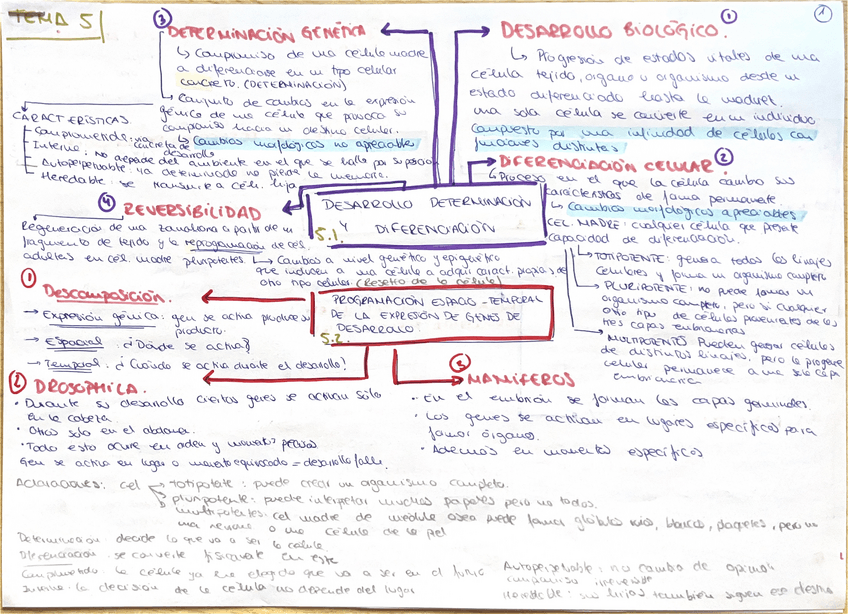 TEMA 5
1
③ DETERMINACIÓN GENÉTICA
↳ Compromiso de una célula madre
a diferenciarse en un tipo celular
concreto. (DETERMINACIÓN)
↳ Conjunto de cambios en la expresión
génica de una célula que provoca su
compromiso hacia un destino celular.
↳ Cambios morfológicos no apreciables
CARACTERÍSTICAS
Comprometida: vía concreta de desarrollo
Interno: no depende del ambiente en el que se halla por su posición
Autoperpetuable: ya determinado no pierde la memoria.
Heredable: se transmite a cél. hija
① DESARROLLO BIOLÓGICO.
↳ Progresión de estados vitales de una
célula, tejido, órgano u organismo desde un
estado diferenciado hasta la madurez.
una sola célula se convierte en un individuo
compuesto por una infinidad de células con
funciones distintas
② DIFERENCIACIÓN CELULAR
↳ Proceso en el que la célula cambia sus
características de forma permanente.
↳ Cambios morfológicos apreciables
CEL. MADRE: cualquier célula que presente
capacidad de diferenciación.
→ TOTIPOTENTE: genera todos los linajes
celulares y forma un organismo completo
→ PLURIPOTENTE: no puede formar un
organismo completo, pero sí cualquier
otro tipo de células provenientes de las
tres capas embrionarias
→ MULTIPOTENTE: Pueden generar células
de distintos linajes, pero la progenie
celular permanece a una sola capa
embrionaria
④ REVERSIBILIDAD
Regeneración de una zanahoria a partir de un
fragmento de tejido y la reprogramación de cél.
adultas en cél. madre pluripotentes.
↳ Cambios a nivel genético y epigenético
que inducen a una célula a adquirir caract. propias de
otro tipo celular (Reseteo de la célula)
5.1.
DESARROLLO DETERMINACIÓN
Y DIFERENCIACIÓN
5.2.
PROGRAMACIÓN ESPACIO-TEMPORAL
DE LA EXPRESIÓN DE GENES DE
DESARROLLO.
① Descomposición.
→ Expresión génica: gen se activa produciendo
producto.
→ Espacial: ¿Dónde se activa?
→ Temporal: ¿Cuándo se activa durante el desarrollo?
② DROSOPHILA.
• Durante su desarrollo ciertos genes se activan sólo
en la cabeza.
• Otros solo en el abdomen.
• Todo esto ocurre en orden y momentos precisos
Gen se activa en lugar o momento equivocado = desarrollo falla.
③ MAMÍFEROS
• En el embrión se forman las capas germinales.
• Los genes se activan en lugares específicos para
formar órganos.
• Además en momentos específicos
Aclaraciones: cel → Totipotente: puede crear un organismo completo.
→ pluripotente: puede interpretar muchos papeles pero no todos.
→ multipotentes: cel madre de médula ósea puede formar glóbulos rojos, blancos, plaquetas, pero no
una neurona o una célula de la piel
Determinación: decide lo que va a ser la célula.
Diferenciación: se convierte físicamente en este
Comprometido: la célula ya ha elegido que va a ser en el futuro
la decisión de la célula no depende del lugar
Autoperpetuable: no cambia de opinión
compromiso irreversible
Heredable: sus hijas también siguen ese destino